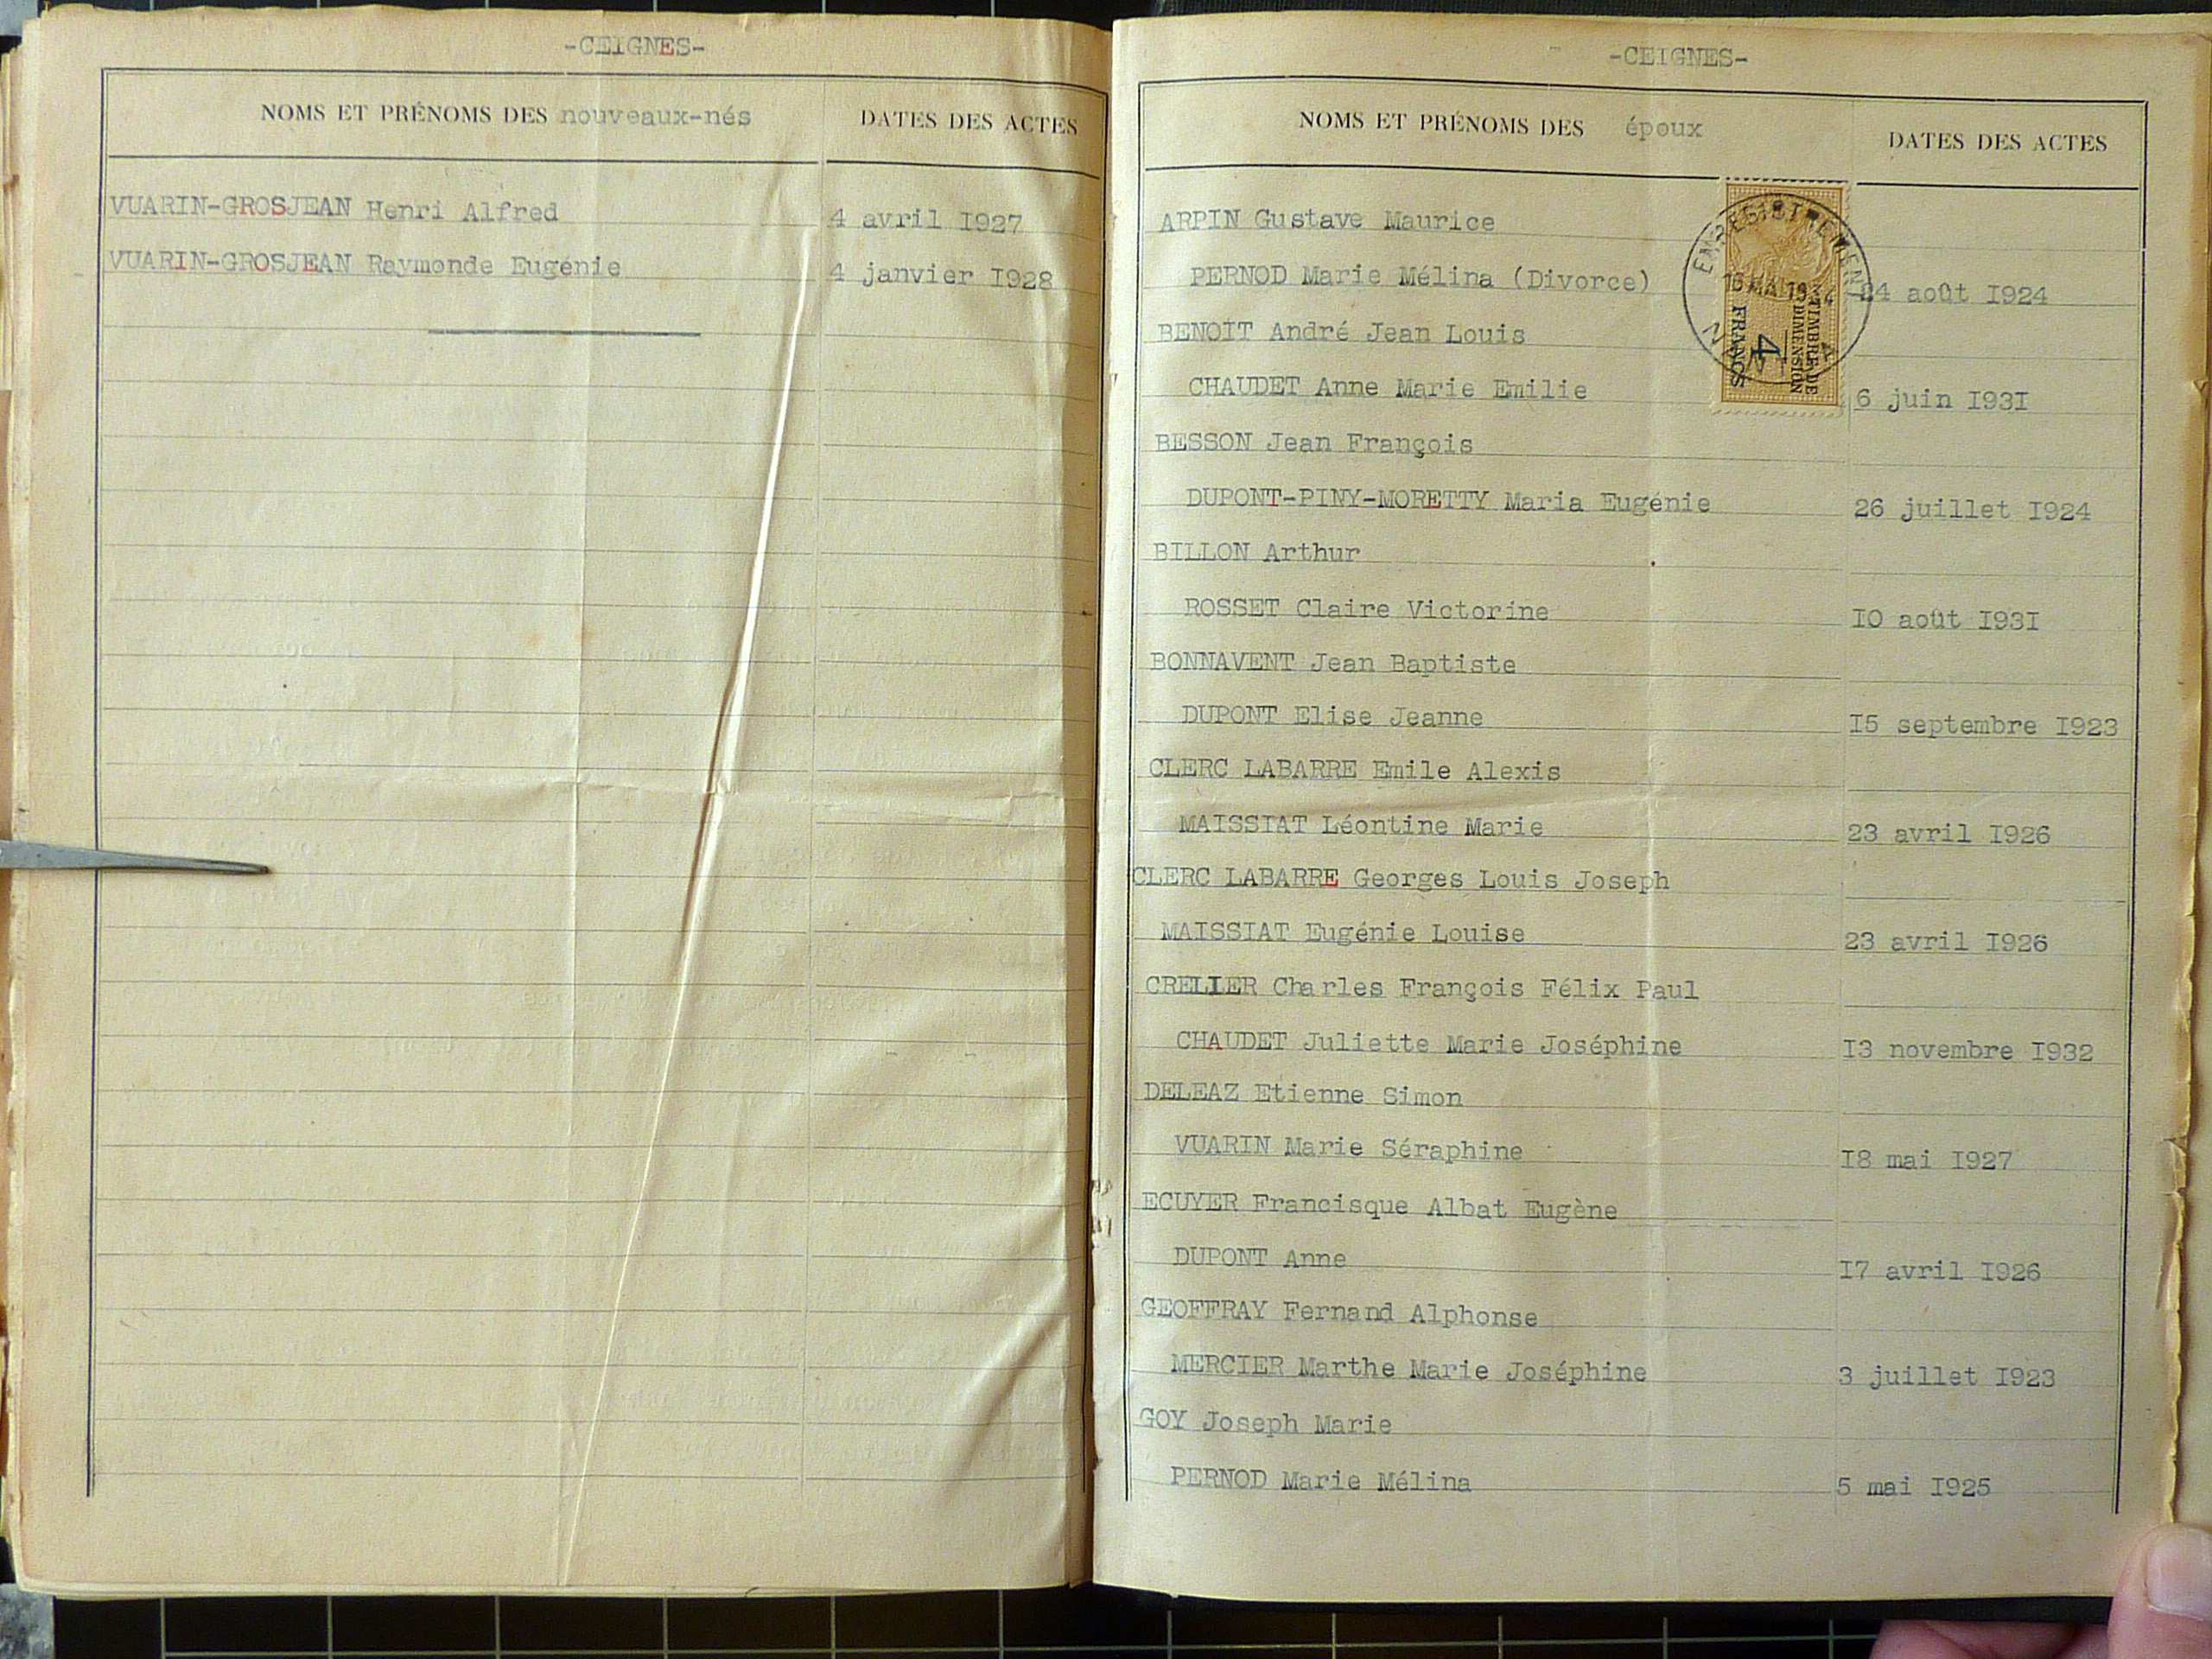 -CEIGNES-
NOMS ET PRÉNOMS DES nouveaux-nés DATES DES ACTES
VUARIN-GROSJEAN Henri Alfred 4 avril I927
VUARIN-GROSJEAN Raymonde Eugénie 4 janvier I928
-CEIGNES-
NOMS ET PRÉNOMS DES époux DATES DES ACTES
ARPIN Gustave Maurice
PERNOD Marie Mélina (Divorce) 24 août I924
BENOÎT André Jean Louis
CHAUDET Anne Marie Emilie 6 juin I93I
BESSON Jean François
DUPONT-PINY-MORETTY Maria Eugénie 26 juillet I924
BILLON Arthur
ROSSET Claire Victorine I0 août I93I
BONNAVENT Jean Baptiste
DUPONT Elise Jeanne I5 septembre I923
CLERC LABARRE Emile Alexis
MAISSIAT Léontine Marie 23 avril I926
CLERC LABARRE Georges Louis Joseph
MAISSIAT Eugénie Louise 23 avril I926
CRELIER Charles François Félix Paul
CHAUDET Juliette Marie Joséphine I3 novembre I932
DELEAZ Etienne Simon
VUARIN Marie Séraphine I8 mai I927
ECUYER Francisque Albat Eugène
DUPONT Anne I7 avril I926
GEOFFRAY Fernand Alphonse
MERCIER Marthe Marie Joséphine 3 juillet I923
GOY Joseph Marie
PERNOD Marie Mélina 5 mai I925
ENREGISTREMENT
16 MAI
TIMBRE DE
DIMENSION
4
FRANCS